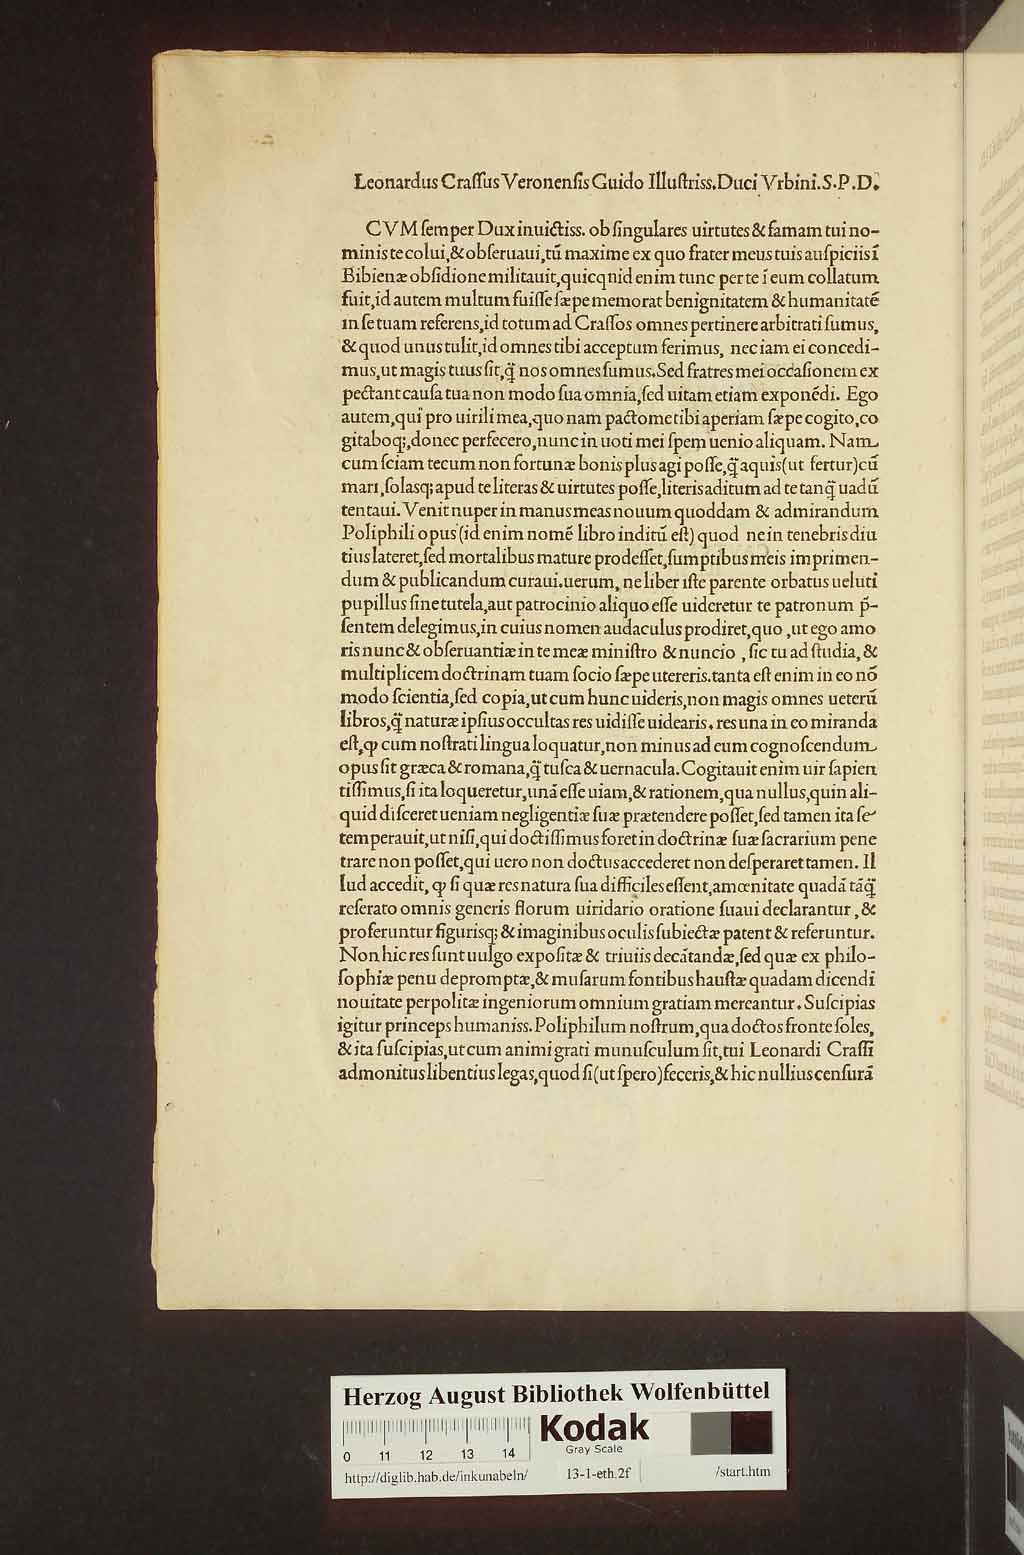 Leonardus Craſſus Veronenſis Guido Illuſtriss.Duci Vrbini.S.P.D.
CVM ſemper Dux inuictiss. ob ſingulares uirtutes & famam tui no-
minis te colui,& obſeruaui,tū maxime ex quo frater meus tuis auſpiciis ī
Bibienæ obſidione militauit,quicqnid enim tunc per te ī eum collatum
fuit,id autem multum fuiſſe ſæpe memorat benignitatem & humanitatē
in ſe tuam referens,id totum ad Craſſos omnes pertinere arbitrati ſumus,
& quod unus tulit,id omnes tibi acceptum ferimus, nec iam ei concedi-
mus,ut magis tuus ſit,q̃ nos omnes ſumus.Sed fratres mei occaſionem ex
pectant cauſa tua non modo ſua omnia,ſed uitam etiam exponēdi. Ego
autem,qui pro uirili mea,quo nam pacto me tibi aperiam ſæpe cogito,co
gitaboq;,donec perfecero,nunc in uoti mei ſpem uenio aliquam. Nam
cum ſciam tecum non fortunæ bonis plus agi poſſe,q̃ aquis(ut fertur)cū
mari,ſolasq; apud te literas & uirtutes poſſe,literis aditum ad te tanq̃ uadū
tentaui. Venit nuper in manus meas nouum quoddam & admirandum
Poliphili opus (id enim nomē libro inditū eſt) quod ne in tenebris diu
tius lateret,ſed mortalibus mature prodeſſet,ſumptibus meis imprimen-
dum & publicandum curaui.uerum, ne liber iſte parente orbatus ueluti
pupillus ſine tutela,aut patrocinio aliquo eſſe uideretur te patronum p̄-
ſentem delegimus,in cuius nomen audaculus prodiret,quo ,ut ego amo
ris nunc & obſeruantiæ in te meæ miniſtro & nuncio , ſic tu ad ſtudia, &
multiplicem doctrinam tuam ſocio ſæpe utereris.tanta eſt enim in eo nō
modo ſcientia,ſed copia,ut cum hunc uideris,non magis omnes ueterū
libros,q̃ naturæ ipſius occultas res uidiſſe uidearis. res una in eo miranda
eſt,ꝙ cum noſtrati lingua loquatur,non minus ad eum cognoſcendum
opus ſit græca & romana,q̃ tuſca & uernacula. Cogitauit enim uir ſapien
tiſſimus,ſi ita loqueretur,unā eſſe uiam,& rationem,qua nullus,quin ali-
quid diſceret ueniam negligentiæ ſuæ prætendere poſſet,ſed tamen ita ſe
temperauit,ut niſi,qui doctiſſimus foret in doctrinæ ſuæ ſacrarium pene
trare non poſſet,qui uero non doctus accederet non deſperaret tamen. Il
lud accedit, ꝙ ſi quæ res natura ſua difficiles eſſent,amœnitate quadā tāq̃
reſerato omnis generis florum uiridario oratione ſuaui declarantur, &
proferuntur figurisq; & imaginibus oculis ſubiectæ patent & referuntur.
Non hic res ſunt uulgo expoſitæ & triuiis decātandæ,ſed quæ ex philo-
ſophiæ penu depromptæ,& muſarum fontibus hauſtæ quadam dicendi
nouitate perpolitæ ingeniorum omnium gratiam mereantur. Suſcipias
igitur princeps humaniss.Poliphilum noſtrum,qua doctos fronte ſoles,
& ita ſuſcipias,ut cum animi grati munuſculum ſit,tui Leonardi Craſſi
admonitus libentius legas,quod ſi(ut ſpero)feceris,& hic nullius cenſurā
Herzog August Bibliothek Wolfenbüttel
Kodak
Gray Scale
0 11 12 13 14
http://diglib.hab.de/inkunabeln/ 13-1-eth.2f /start.htm